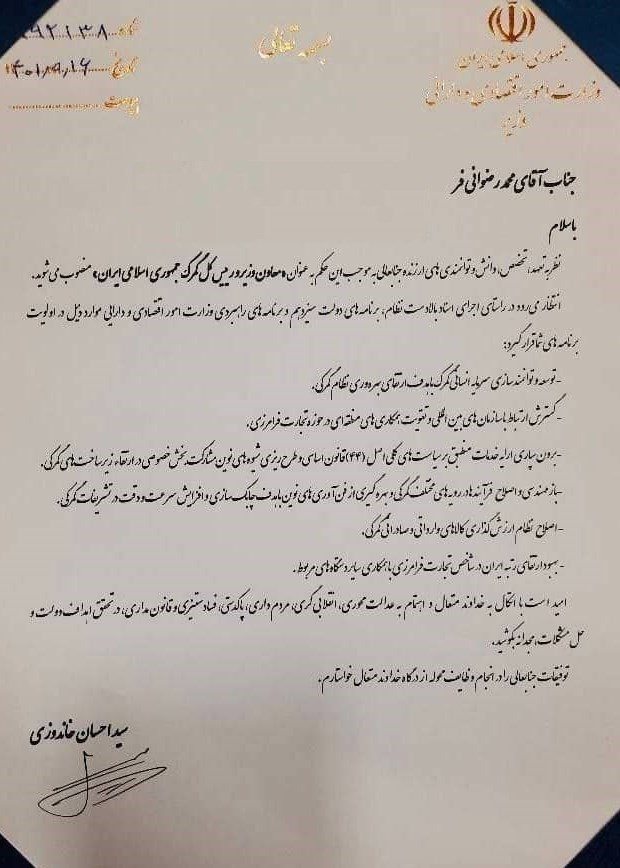 جمهوری اسلامی ایران
وزارت امور اقتصادی و دارائی
وزیر
بسمه تعالی
شماره ۹۲۱۳۸
تاریخ ۱۴۰۱,۹,۱۶
پیوست
جناب آقای محمد رضوانی فر
باسلام
نظر به تعهد، تخصص، دانش و توانمندی های ارزنده جنابعالی به موجب این حکم به عنوان «معاون وزیر و رییس کل گمرک جمهوری اسلامی ایران» منصوب می شوید.
انتظار می رود در راستای اجرای اسناد بالادست نظام، برنامه های دولت سیزدهم و برنامه های راهبردی وزارت امور اقتصادی و دارایی موارد ذیل در اولویت
برنامه های شما قرار گیرد:
-توسعه و توانمند سازی سرمایه انسانی گمرک با هدف ارتقای بهره وری نظام گمرکی.
-گسترش ارتباط با سازمان های بین المللی و تقویت همکاری های منطقه ای در حوزه تجارت فرامرزی.
-برون سپاری ارایه خدمات منطبق بر سیاست های کلی اصل (۴۴) قانون اساسی و طرح ریزی شیوه های نوین مشارکت بخش خصوصی در ارتقاء زیرساخت های گمرکی.
-باز مهندسی و اصلاح فرآیندها در رویه های مختلف گمرکی و بهره گیری از فن آوری های نوین با هدف چابک سازی و افزایش سرعت و دقت در تشریفات گمرکی.
-اصلاح نظام ارزش گذاری کالاهای وارداتی و صادراتی گمرکی.
-بهبود ارتقای رتبه ایران در شاخص تجارت فرامرزی با همکاری سایر دستگاه های مربوط.
امید است با اتکال به خداوند متعال و اهتمام به عدالت محوری، انقلابی گری، مردم داری، پاکدستی، فساد ستیزی و قانون مداری، در تحقق اهداف دولت و
حل مشکلات، مجدانه بکوشید.
توفیقات جنابعالی را در انجام وظایف محوله از درگاه خداوند متعال خواستارم.
سید احسان خاندوزی